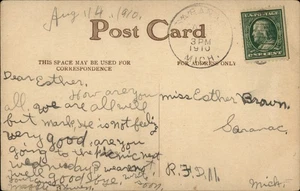 Aug 14, 1910.
Post Card
3 PM
1910
MICH.
THIS SPACE MAY BE USED FOR
CORRESPONDENCE
FOR ADDRESS ONLY
Dear Esther.
How are you
all, we are all well
but mark. He is not feeling
very good. are you
going to the picnic next
Miss Esther Brown,
Saranac,
R.F.D. 11.
Mich.